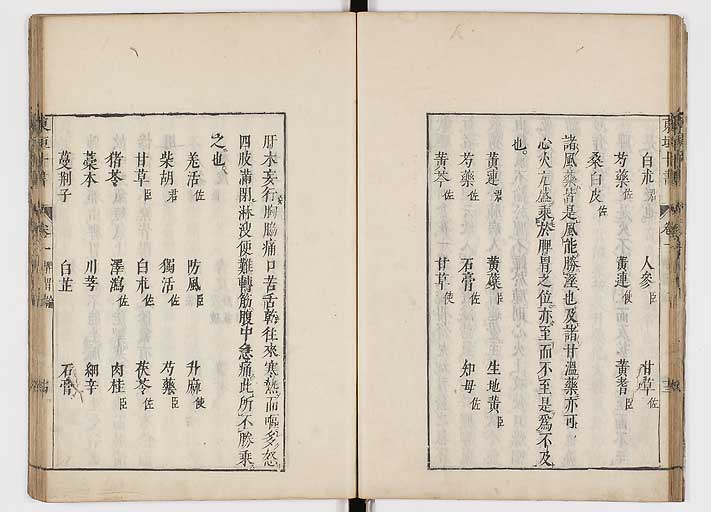 東垣十書
卷一
白朮君 人參臣 甘草佐
芍藥佐 黃連使 黃耆臣
桑白皮佐
諸風藥皆是風能勝溼也及諸甘溫藥亦可
心火亢盛乘於脾胃之位亦至而不至是爲不及
也
黃連君 黃蘗臣 生地黃臣
芍藥佐 石膏佐 知母佐
黃芩佐 甘草使
肝木妄行胸脇痛口苦舌乾往來寒熱而嘔多怒
四肢滿閉淋溲便難轉筋腹中急痛此所不勝乘
之也
羌活佐 防風臣 升麻使
柴胡君 獨活佐 芍藥臣
甘草臣 白朮佐 茯苓佐
猪苓 澤瀉佐 肉桂臣
藁本 川芎 細辛
蔓荆子 白芷 石膏
東垣十書
卷一 脾胃論